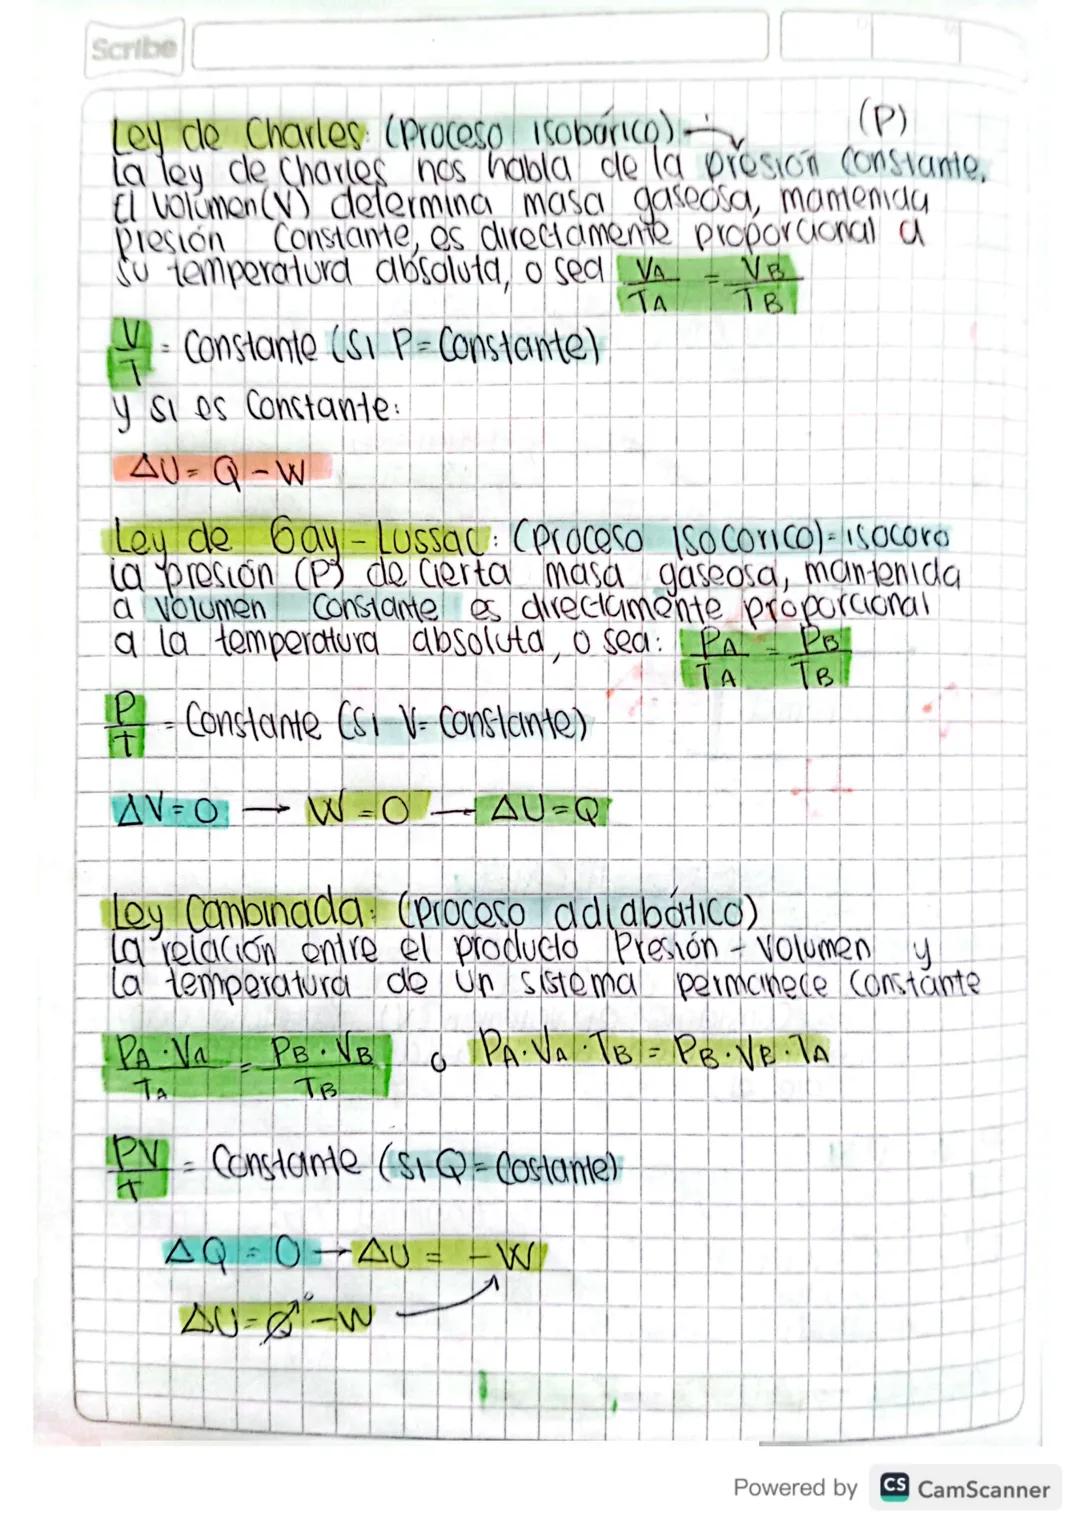 Scribe
(P)
Ley de Charles: (Proceso isobárico)
La ley de Charles nos habla de la presión constante.
El Volúmen(V) determina masa gaseosa, mantenida
presión Constante, es directamente proporcional a
su temperatura absoluta, o sea VA/TA = VB/TB
V/T = Constante (Si P=Constante)
y si es Constante:
ΔU= Q - W
Ley de Gay-Lussac: (Proceso Isocorico)=isocoro
La presión (P) de cierta masa gaseosa, mantenida
a Volumen Constante es directamente proporcional
a la temperatura absoluta, o sea: PA/TA = PB/TB
P/T = Constante (Si V= Constante)
ΔV=0 → W=0 → ΔU=Q
Ley Combinada: (proceso adiabático)
La relación entre el producto Presión - Volumen y
la temperatura de un sistema permanece Constante
PA·VA/TA = PB·VB/TB o PA·VA·TB = PB·VB·TA
PV/T = Constante (si Q = Costante)
ΔQ = 0 → ΔU = -W
ΔU= Q⁰ - W
Powered by CS CamScanner